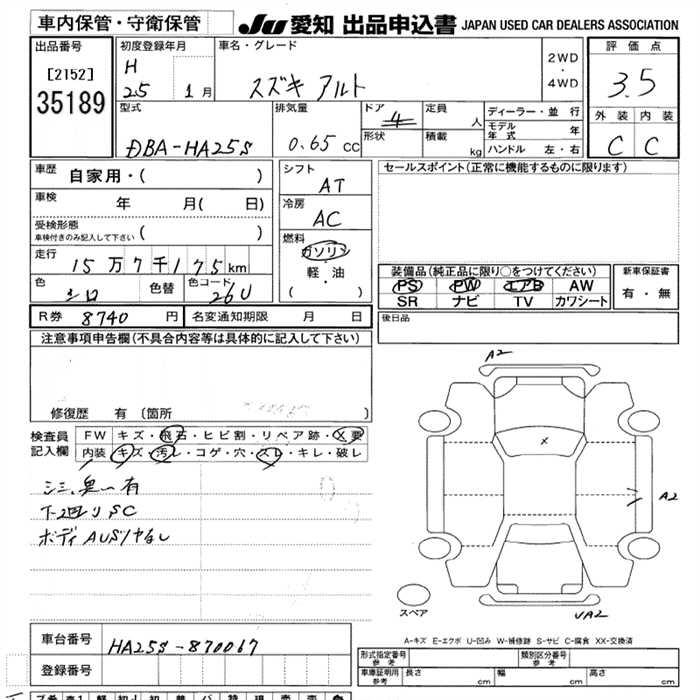 車内保管・守衛保管
JU 愛知 出品申込書 JAPAN USED CAR DEALERS ASSOCIATION
出品番号
[2152]
35189
初度登録年月
H
25 1月
車名・グレード
スズキ アルト
2WD
・
4WD
評価点
3.5
外装 内装
C C
型式
DBA-HA25S
排気量
0.65 cc
ドア
4
形状
定員
人
積載
kg
ディーラー・並 行
モデル年式 年
ハンドル 左・右
車歴
自家用・( )
車検
年 月( 日)
受検形態
車検付きのみ記入して下さい ( )
走行
15万7千175km
色
シロ
色替
色コード
26U
シフト
AT
冷房
AC
燃料
ガソリン
・
軽・油
( )
セールスポイント(正常に機能するものに限ります)
装備品(純正品に限り○をつけてください)
PS PW エアB AW
SR ナビ TV カワシート
新車保証書
有・無
R券 8740 円
名変通知期限 月 日
後日品
注意事項申告欄(不具合内容等は具体的に記入して下さい)
修復歴 有 〔箇所 〕
検査員
記入欄
FW キズ・飛石・ヒビ割・リペア跡・X要
内装 キズ・汚レ・コゲ・穴・スレ・キレ・破レ
シミ、臭い有
下廻りSC
A2
X
A2
スペア
UA2
A-キズ E-エクボ U-凹み W-補修跡 S-サビ C-腐食 XX-交換済
車台番号
HA25S-870067
登録番号
形式指定番号
参考
類別区分番号
参考
車庫証明用
参考
長さ cm 幅 cm 高さ cm